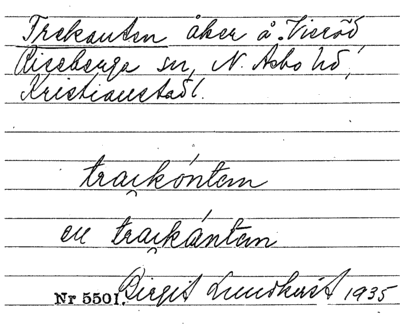 Trekanten åker å Visröd
Risseberga sn, N. Asbo hd,
Kristianstads l.
trai̯kóntem
en trai̯kántem
Nr 5501. Birgit Lundkvist 1935